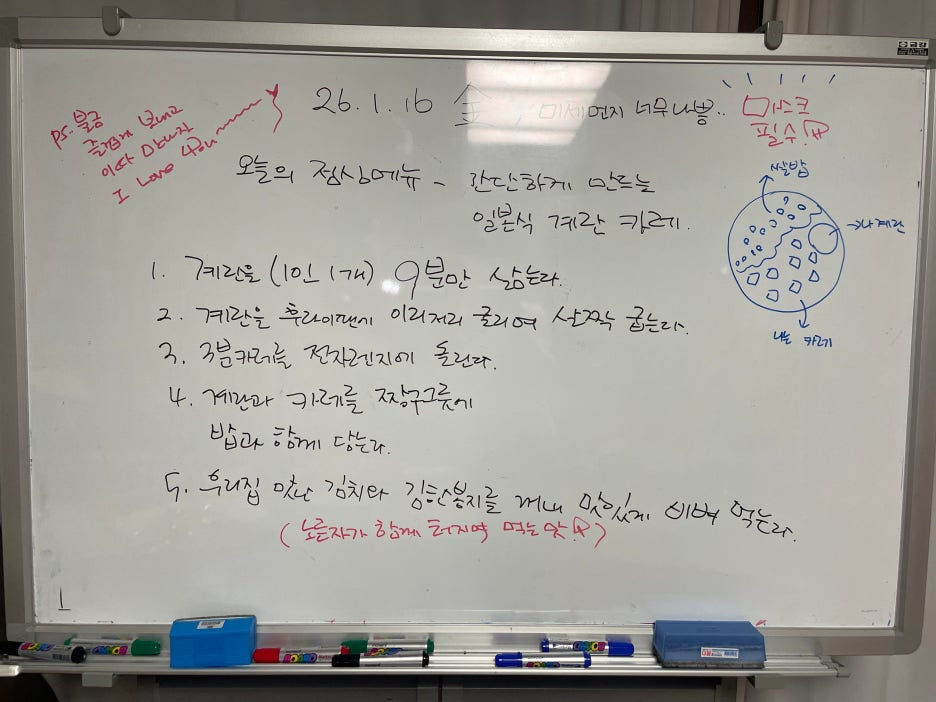 26.1.16 金, 미세먼지 너무나쁨..
마스크
필수!
ps. 불금
즐겁게 보내고
이따 만나자
I Love
오늘의 점심메뉴 - 간단하게 만드는
일본식 계란 카레.
쌀밥
계란
카레
1. 계란을 (1인 1개) 9분만 삶는다.
2. 계란을 후라이팬에 이리저리 굴리며 살짝 굽는다.
3. 3분카레를 전자렌지에 돌린다.
4. 계란과 카레를 짱구그릇에
밥과 함께 담는다.
5. 우리집 맛난 김치와 김한봉지를 꺼내 맛있게 비벼 먹는다.
(노른자가 함께 터지며 먹는맛!)
금강